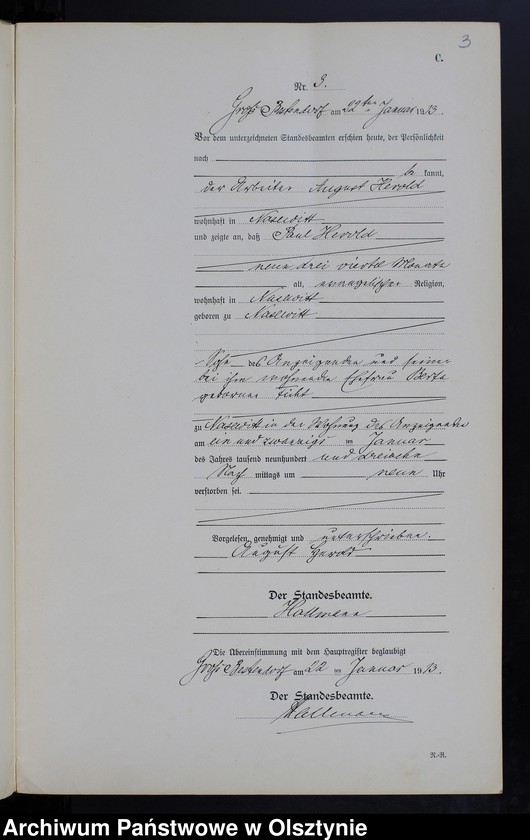 3
C.
Nr. 3.
Groß Bestendorf am 22ten Januar 1913.
Vor dem unterzeichneten Standesbeamten erschien heute, der Persönlichkeit
nach
be kannt,
der Arbeiter August Herold
wohnhaft in Naséwitt
und zeigte an, daß Paul Herold
neun drei viertel Monate
alt, evangelischer Religion,
wohnhaft in Naséwitt
geboren zu Naséwitt
Sohn des Anzeigenden und seiner
bei ihm wohnenden Ehefrau Berta
geborene
zu Naséwitt in der Wohnung des Anzeigenden
am ein und zwanzigs ten Januar
des Jahres tausend neunhundert und dreizehn
Nach mittags um neun Uhr
verstorben sei.
Vorgelesen, genehmigt und unterschrieben.
August Herold
Der Standesbeamte.
Hallmann
Die Übereinstimmung mit dem Hauptregister beglaubigt
Groß Bestendorf am 22 ten Januar 1913.
Der Standesbeamte.
Hallmann
R.-R.
Archiwum Państwowe w Olsztynie